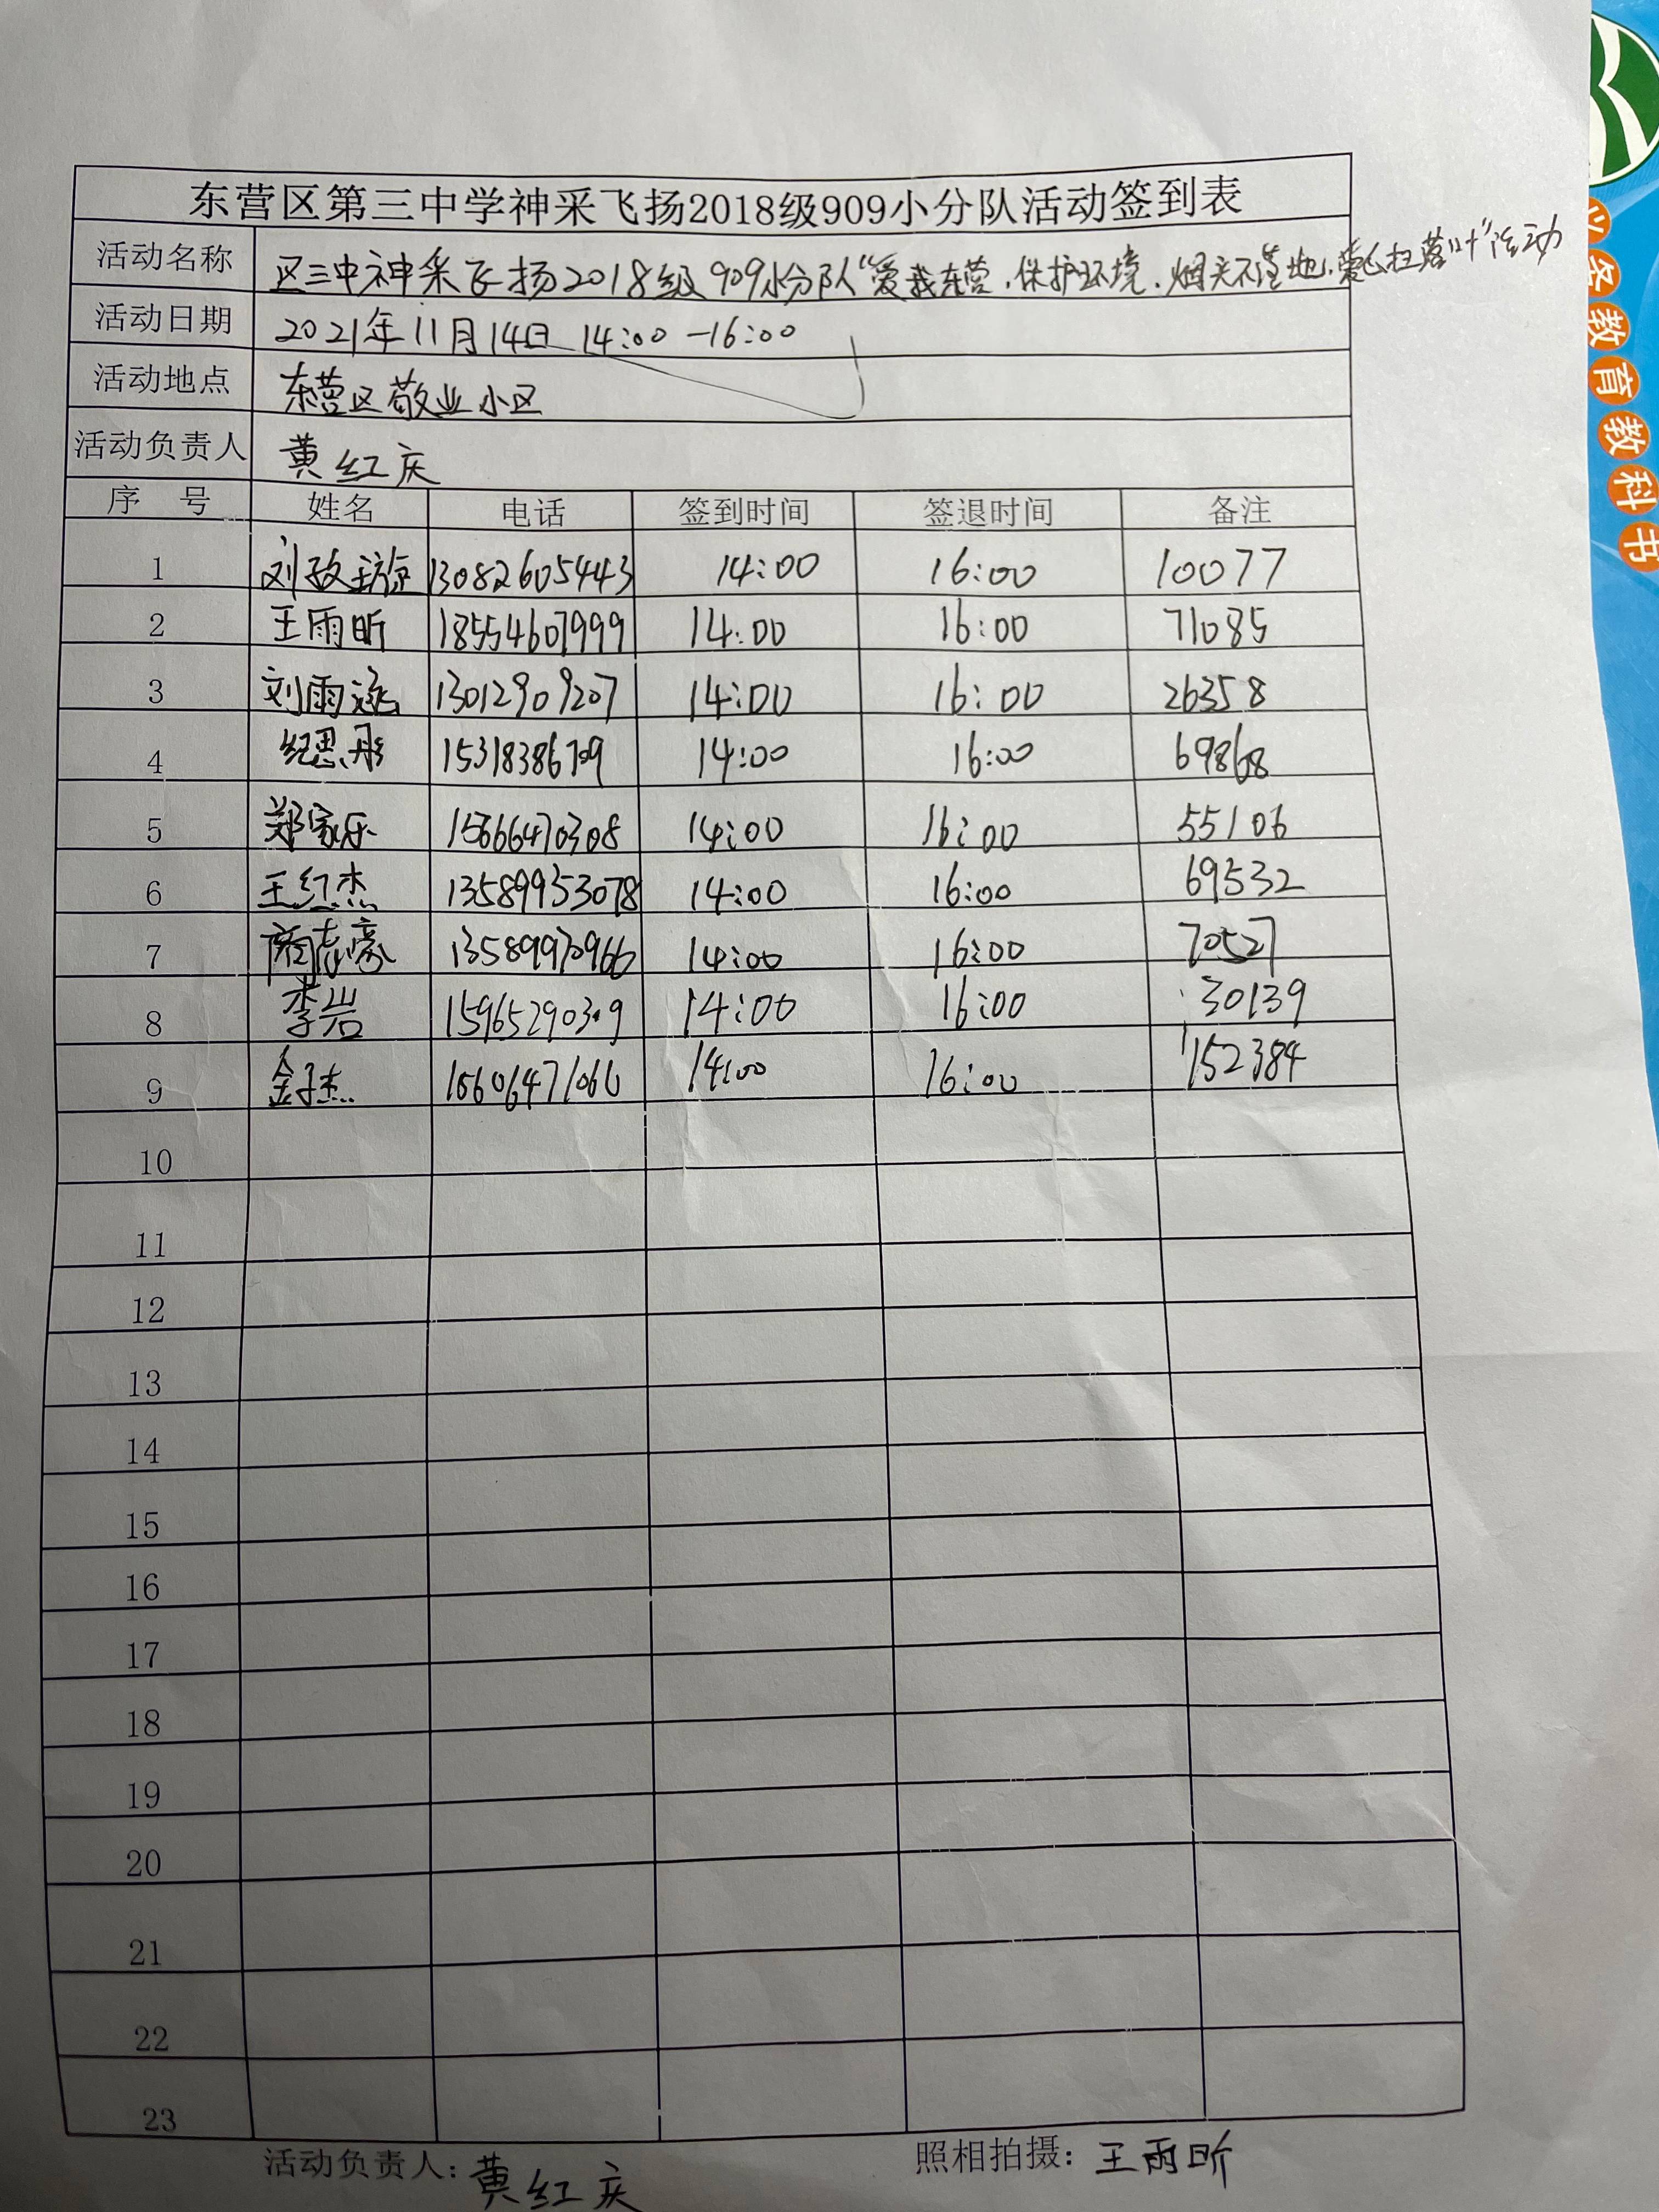 东营区第三中学神采飞扬2018级909小分队活动签到表
活动名称 区三中神采飞扬2018级909小分队“爱我东营.保护环境.烟头不落地.爱心扫落叶”活动
活动日期 2021年11月14日 14:00-16:00
活动地点 东营区敬业小区
活动负责人 黄红庆
序 号 姓名 电话 签到时间 签退时间 备注
1 刘孜璇 13082605443 14:00 16:00 10077
2 王雨昕 18554607999 14:00 16:00 71085
3 刘雨涵 13012909207 14:00 16:00 26358
4 纪思彤 14:00 16:00 69868
5 郑家乐 15666470308 14:00 16:00 55106
6 王红杰 13589953078 14:00 16:00 69532
7 商志豪 13589970966 14:00 16:00 70527
8 李岩 14:00 16:00 30139
9 金子杰 14:00 16:00 152384
10
11
12
13
14
15
16
17
18
19
20
21
22
23
活动负责人：黄红庆 照相拍摄：王雨昕
务教育教科书